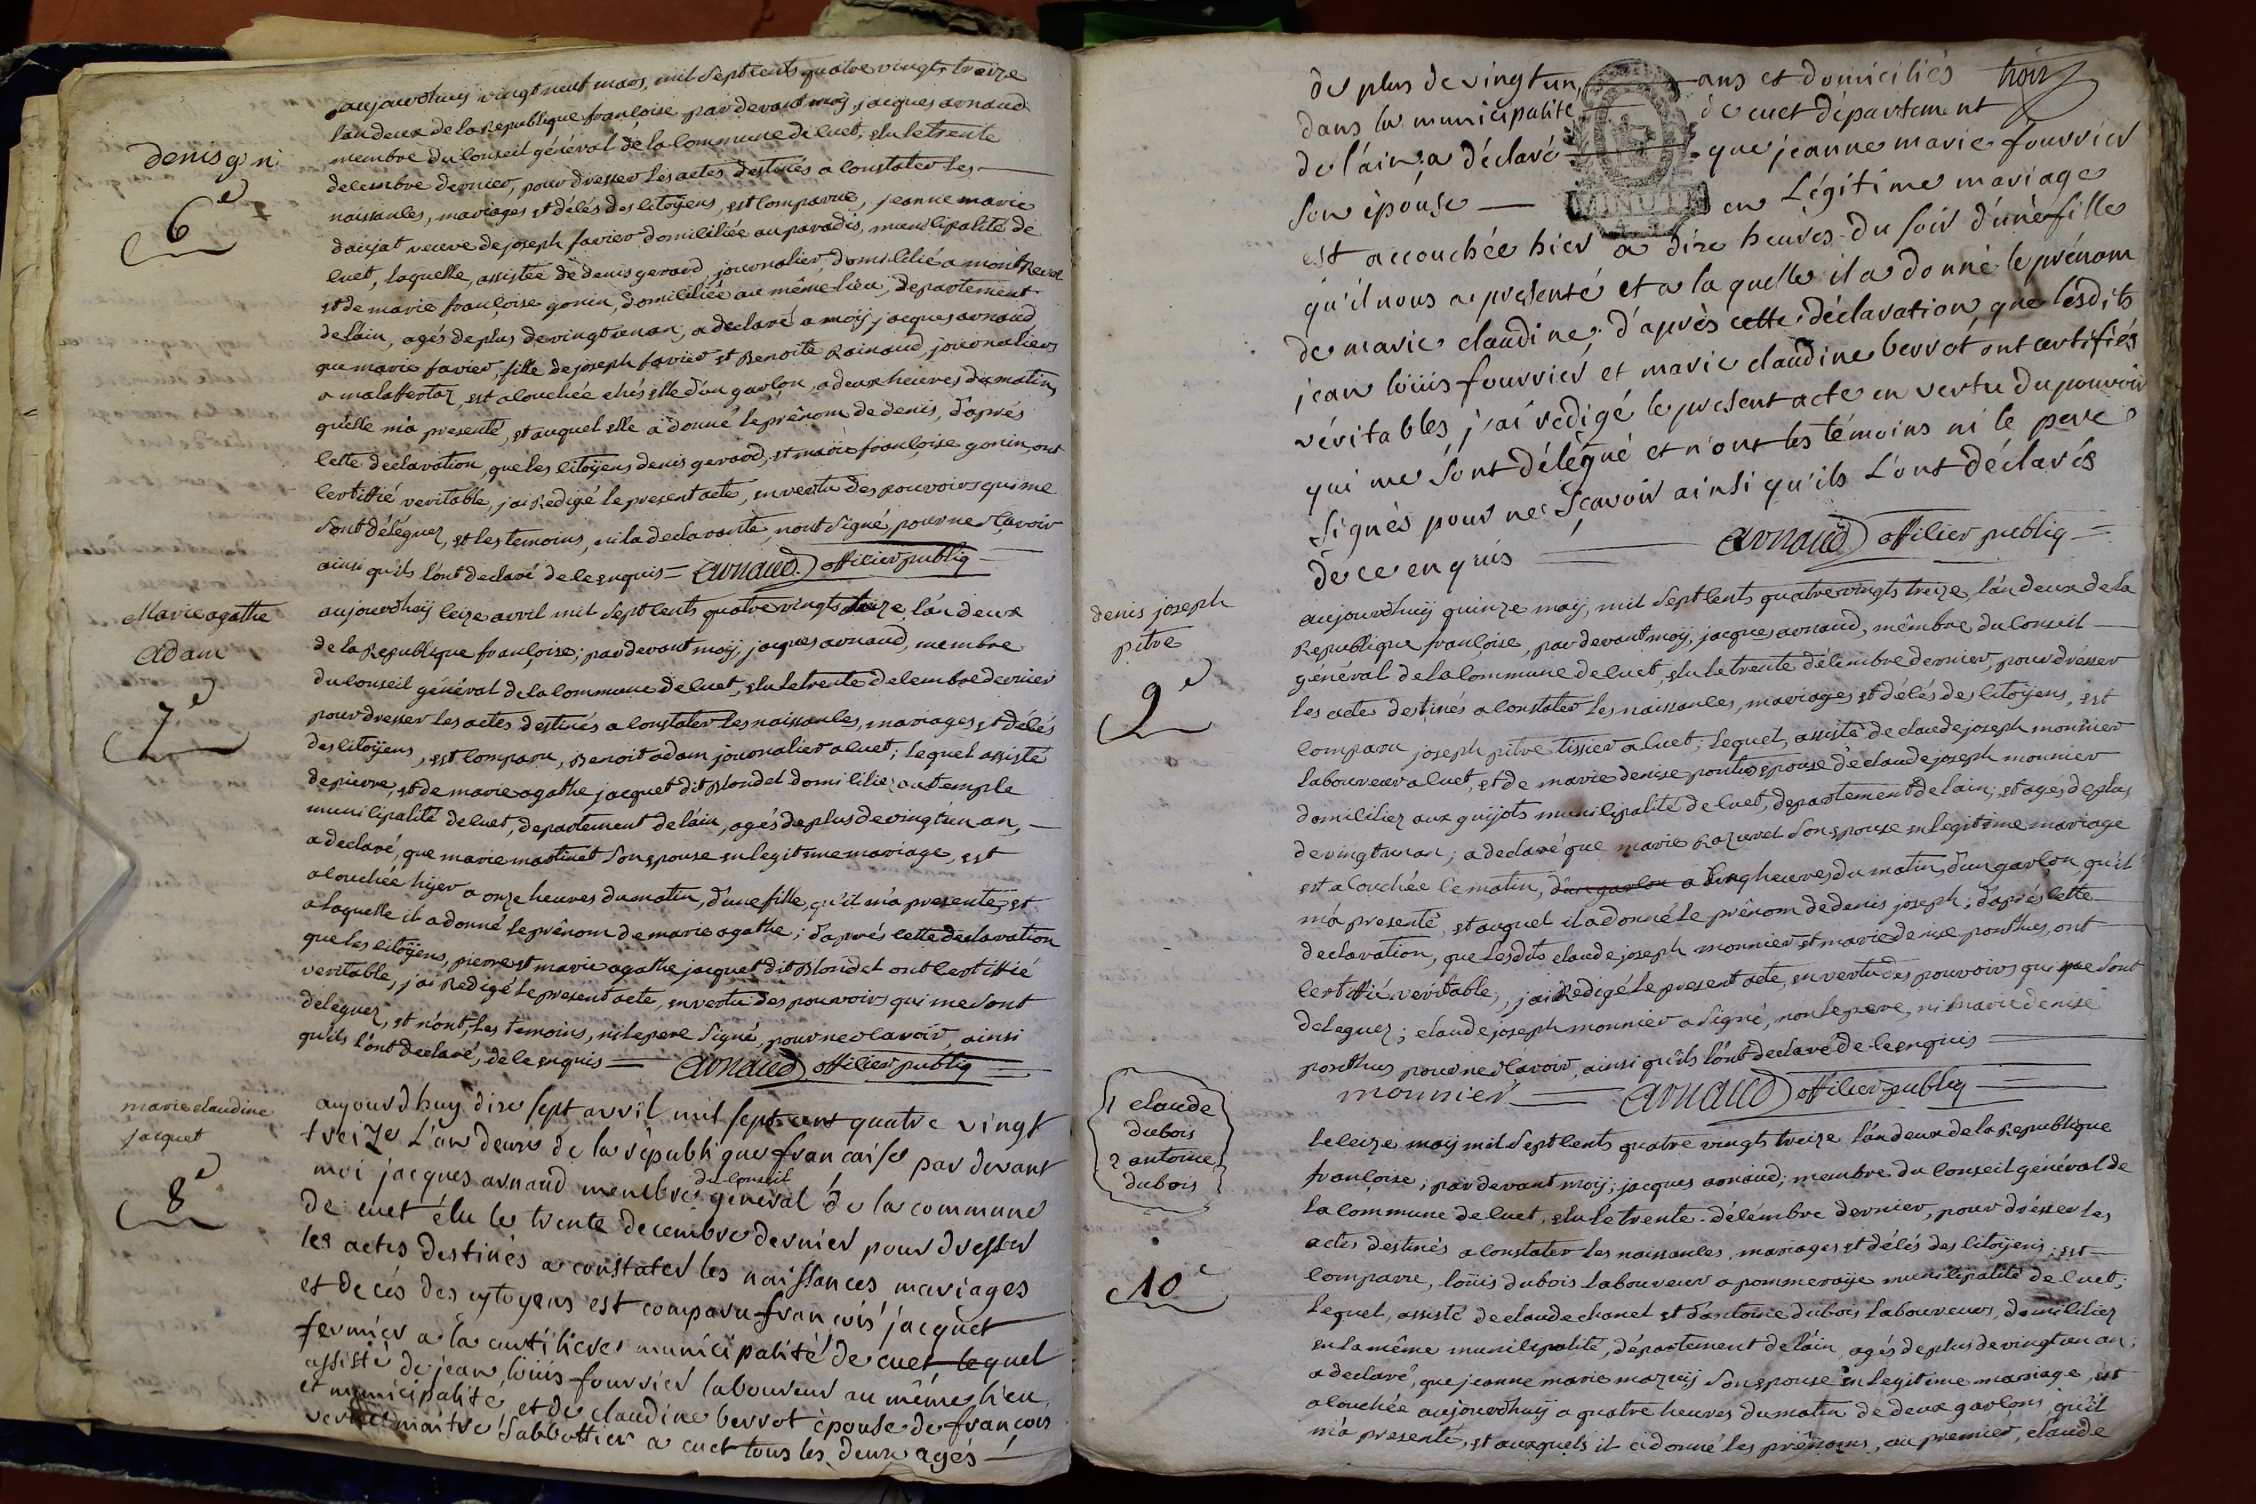 aujourdhuy vingt neuf mars, mil sept cents quatre vingts treize
l'an deux de la Republique françoise par devant moy jacques arnaud
membre du Conseil général de la Commune de Cuet, elu le trente
denis g. n.
decembre dernier, pour dresser les actes destinés a Constater les
6e
naissances, mariages et décés des Citoÿens, est Comparue, jeanne marie
daujat veuve de joseph favier domiciliée au paradis, municipalité de
Cuet, laquelle, assistée de denis gerard, journalier, domicilié a mont Revel
et de marie françoise gonin, domiciliée au même lieu, departement
de l'ain, agés de plus de vingt un an, a declaré a moÿ jacques arnaud
que marie favier, fille de joseph favier et Benoite Rainaud, journaliers
a malaffertaz, est acouchée chés elle d'un garçon, a deux heures du matin,
qu'elle m'a presenté, et auquel elle a donné le prênom de denis, d'aprés
Cette declaration, que les Citoÿens denis gerard, et marie françoise gonin, ont
Certiffié veritable, j'ai Redigé le present acte, en vertu des pouvoirs qui me
sont déléguez, et les temoins, ni la declarante, n'ont signé, pour ne sçavoir
ainsi qu'ils l'ont declaré de ce enquis = arnaud officier publiq
Marie agathe
adam
7e
aujourdhuÿ seize avril mil sept cents quatre vingts treize l'an deux
de la Republique françoise; par devant moÿ, jacques arnaud, membre
du Conseil général de la Commune de Cuet, elu le trente decembre dernier
pour dresser les actes destinés a Constater les naissances, mariages et décés
des Citoÿens, est Comparu, Benoit adam journalier a Cuet; lequel assisté
de pierre, et de marie agathe jacquet dit Blondel domiciliez au temple
municipalité de Cuet, departement de l'ain, agés de plus de vingt un an,
a declaré, que marie martinet son epouse en legitime mariage, est
acouchée hÿer a onze heures du matin, d'une fille, qu'il m'a presentée, et
a laquelle il a donné le prênom de marie agathe; d'aprés Cette declaration
que les Citoÿens, pierre et marie agathe jacquet dit Blondel ont Certiffié
veritable, j'ai Redigé le present acte, en vertu des pouvoirs qui me sont
deleguez, et n'ont, les temoins, ni le pere signé, pour ne sçavoir, ainsi
qu'ils l'ont declaré, de ce enquis = arnaud officier publiq
marie claudine
jacquet
8e
aujourdhuy dix sept avril mil sept cent quatre vingt
treize L'an deux de la république francaise par devant
moi jacques arnaud membre du Conseil général de la commune
de cuet élu le trente decembre dernier pour dresser
les actes destinés a constater les naissances mariages
et decés des cytoyens est comparu francois jacquet
fermier a la municipalité de cuet lequel
assisté de jean loüis fourrier laboureur au même lieu
et municipalité et de claudine berrot épouse de francois
maitre sabbottier a cuet tous les deux agés
de plus de vingt un ans et domiciliés trois
dans la municipalité de cuet département
de l'ain a déclaré que jeanne marie fourrier
son épouse en Légitime mariage
MINUTE
est accouchée hier a dix heures du soir d'une fille
qu'il nous a presenté et a la quelle il a donné le prénom
de marie claudine; d'après cette déclaration que lesdits
jean loüis fourrier et marie claudine berrot ont certifiés
véritables j'ai rédigé le present acte en vertu du pouvoir
qui me sont délégué et n'ont les témoins ni le pere
signés pour ne sçavoir ainsi qu'ils L'ont déclarés
de ce enquis arnaud officier publiq =
denis joseph
pitre
9e
aujourdhuÿ quinze maÿ, mil sept cents quatre vingts treize, l'an deux de la
Republique françoise, par devant moÿ, jacques arnaud, mêmbre du Conseil
général de la Commune de Cuet, elu le trente décembre dernier, pour drésser
les actes destinés a Constater les naissances, mariages et décés des Citoÿens, est
Comparu joseph pitre tissier a Cuet; lequel, assisté de claude joseph monnier
laboureur a Cuet, et de marie denise ponthus epouse de claude joseph monnier
domiciliez aux guÿots municipalité de Cuet, departement de l'ain; et agés de plus
de vingt un an; a declaré que marie son epouse en legitime mariage
est acouchée ce matin, d'un garçon a cinq heures du matin, d'un garçon qu'il
m'a presenté, et auquel il a donné le prênom de denis joseph; d'aprés Cette
declaration, que lesdits claude joseph monnier et marie denise ponthus, ont
Certiffié véritable, j'ai Redigé le present acte, en vertu des pouvoirs qui me sont
deleguez; claude joseph monnier a signé, non le pere, ni marie denise
ponthus pour ne sçavoir, ainsi qu'ils l'ont declaré de ce enquis
monnier = arnaud officier publiq =
1 claude
dubois
2 antoine
dubois
10e
le seize maÿ mil sept cents quatre vingts treize l'an deux de la Republique
françoise; par devant moÿ, jacques arnaud, membre du Conseil général de
la Commune de Cuet, elu le trente décémbre dernier, pour drésser les
actes destinés a Constater les naissances, mariages et décés des Citoÿens, est
Comparu, loüis dubois laboureur a pommeraÿe municipalité de Cuet;
lequel, assisté de claude chanel et d'antoine dubois laboureurs, domiciliez
en la même municipalité, département de l'ain, agés de plus de vingt un an;
a declaré, que jeanne marie mazuÿ son epouse en legitime mariage, est
acouchée aujourdhuÿ a quatre heures du matin de deux garçons, qu'il
m'a presenté, et auxquels il a donné les prénoms, au premier, claude